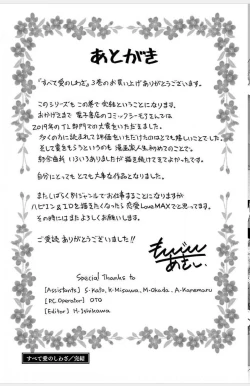 あとがき
「すべて愛のしわざ」3巻のお買い上げありがとうございます。
このシリーズもこの巻で完結ということになります。
おかげさまで 電子書店のコミックシーモアさんでは
2019年のTL部門での大賞をいただきました。
多くの方に読まれて評価をいただけたのはとても嬉しいことでした。
そして賞をもらうというのも漫画家人生初めてのことで。
紆余曲折 いろいろありましたが描き続けてきてよかったです。
自分にとっても とても大事な作品となりました。
またしばらく別ジャンルでお仕事することになりますが
ハピエン&エロを描きたくなったら恋愛LoveMAXでと思ってます。
その時にはまたよろしくお願いします。
ご愛読 ありがとうございました!!
Special Thanks to
[Assistants] S.Kato, K.Misawa, M.Okada, A.Kanemaru
[PC Operator] OTO
[Editor] H.Ishikawa
すべて愛のしわざ/完結